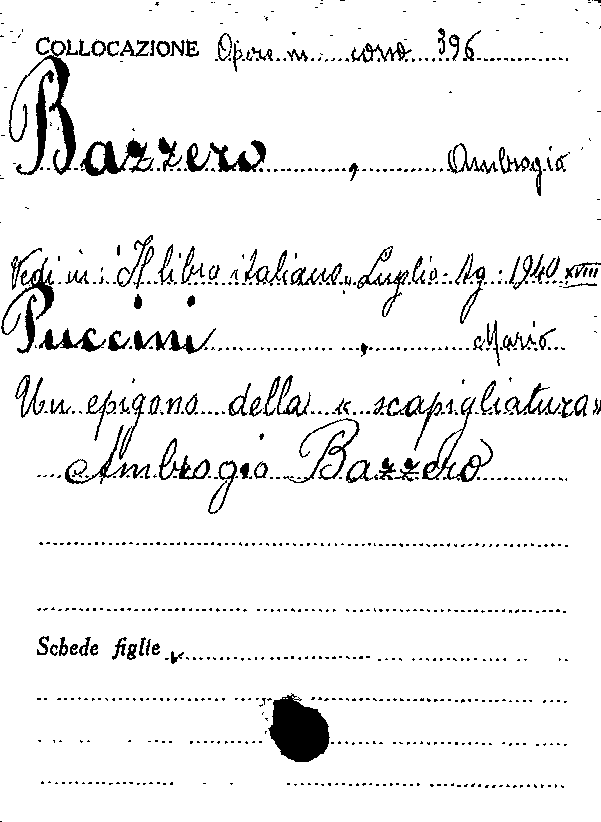 COLLOCAZIONE Opere in corso 396
Bazzero, Ambrogio
Vedi in: "Il libro italiano" Luglio-Ag. 1940 XVIII
Puccini, Mario
Un epigono della « scapigliatura»
Ambrogio Bazzero
Schede figlie